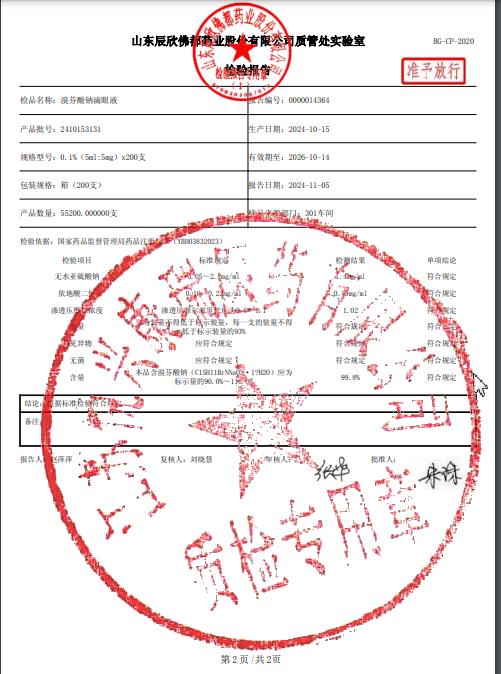 山东辰欣佛都药业股份有限公司质管处实验室
BG-CP-2020
检验报告
准予放行
检品名称: 溴芬酸钠滴眼液 报告编号: 0000014364
产品批号: 2410153131 生产日期: 2024-10-15
规格型号: 0.1% (5ml:5mg) x200支 有效期至: 2026-10-14
包装规格: 箱 (200支) 报告日期: 2024-11-05
产品数量: 55200.000000支 301车间
检验依据: 国家药品监督管理局药品注册 (YBH03832023)
检验项目 标准规定 检测结果 单项结论
无水亚硫酸钠 符合规定
依地酸二 符合规定
渗透压 浓度 1.02 符合规定
量 不得低于标示装量, 每一支的装量不得 符合规定 符合规定
低于标示装量的93%
见异物 应符合规定 符合规定 符合规定
无菌 应符合规定 符合规定 符合规定
含量 本品含溴芬酸钠 应为 99.8% 符合规定
标示量的90.0%~
结论: 依据标准检验符合规定
备注:
报告人: 赵萍萍 复核人: 刘晓慧 审核人: 批准人:
质检专用章
第 2 页 /共 2页